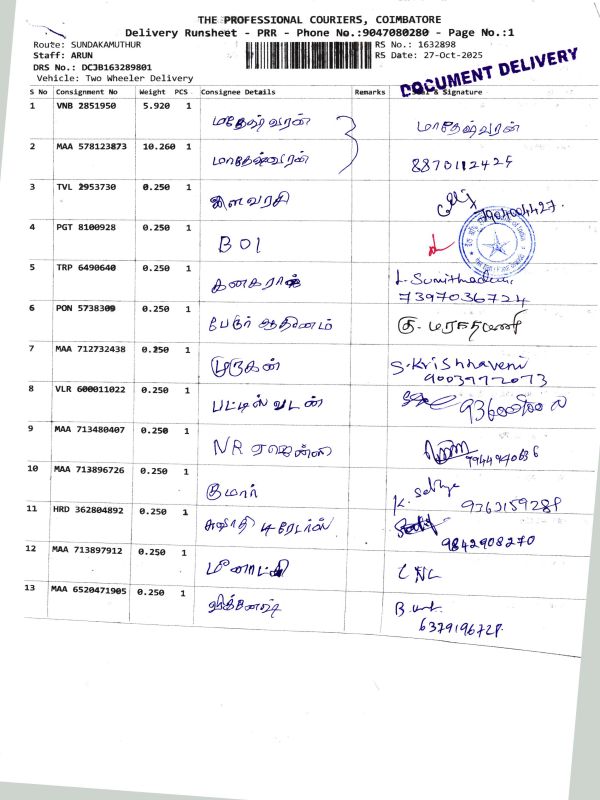 THE PROFESSIONAL COURIERS, COIMBATORE
Delivery Runsheet - PRR - Phone No.:9047080280 - Page No.:1
Route: SUNDAKAMUTHUR RS No.: 1632898
Staff: ARUN RS Date: 27-Oct-2025
DRS No.: DCJB163289801
Vehicle: Two Wheeler Delivery
DOCUMENT DELIVERY
S No Consignment No Weight PCS Consignee Details Remarks & Signature
1 VNB 2851950 5.920 1 மாதேஷ்வரன் மாதேஷ்வரன்
2 MAA 578123873 10.260 1 மாதேஷ்வரன்
3 TVL 2953730 0.250 1 இளவரசி 7904004427.
4 PGT 8100928 0.250 1 BOI
5 TRP 6490640 0.250 1 கனகராஜ்
7397036724
6 PON 5738309 0.250 1 பேரூர் ஆதினம்
7 MAA 712732438 0.250 1 முருகன் S.Krishnaveni
8 VLR 600011022 0.250 1
9 MAA 713480407 0.250 1 NR
10 MAA 713896726 0.250 1 குமார் K. Sathya
9363159281
11 HRD 362804892 0.250 1
9842908270
12 MAA 713897912 0.250 1 மீனாட்சி
13 MAA 6520471905 0.250 1
6379196728